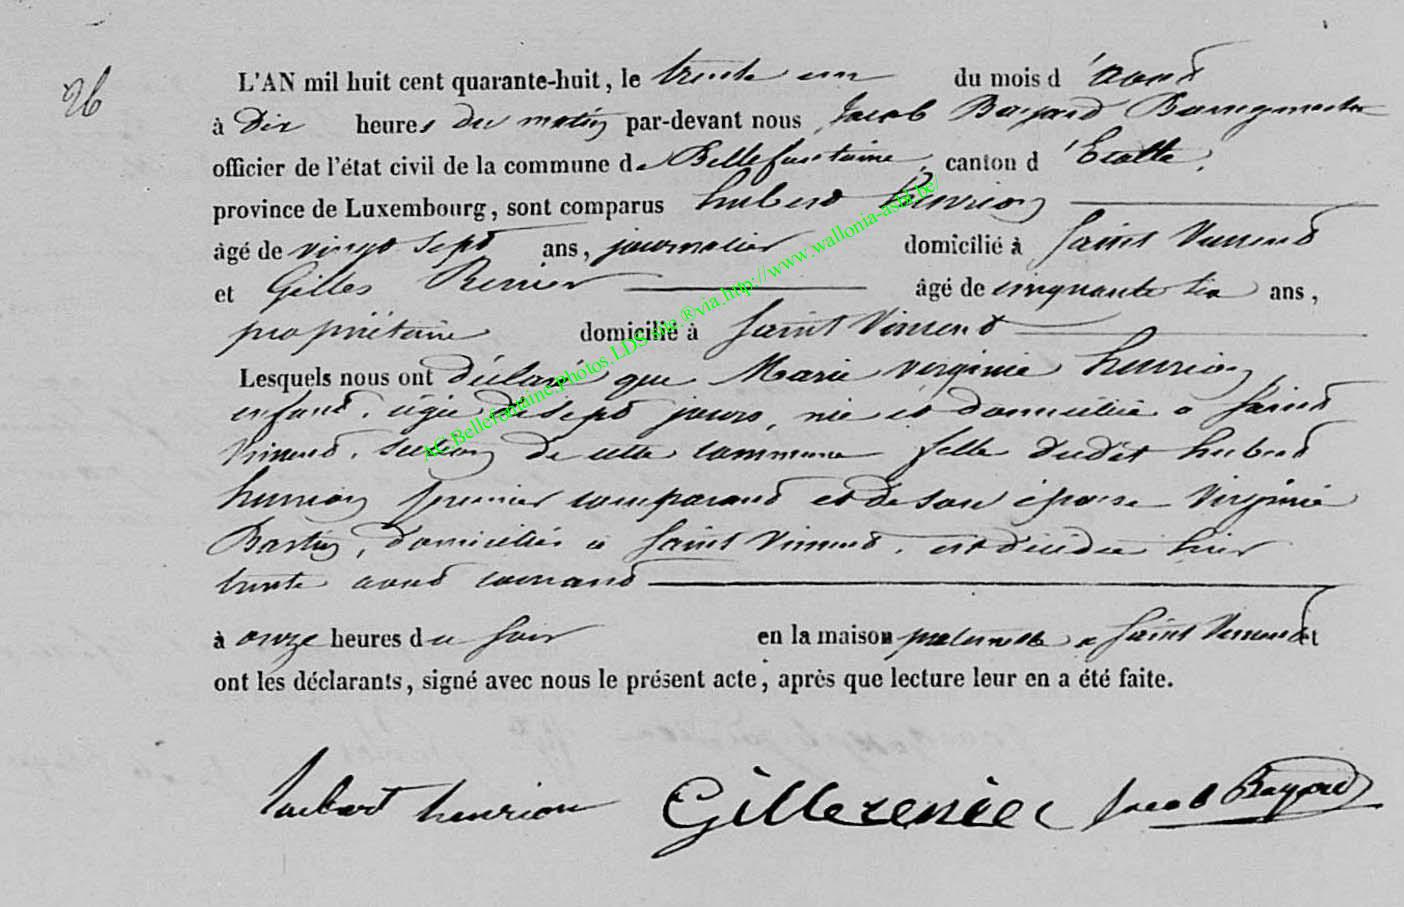 26
L'AN mil huit cent quarante-huit, le trente un du mois d'aout
à Dix heures du matin par-devant nous Jacob Bayard Bourgmestre
officier de l'état civil de la commune de Bellefontaine, canton d'Etalle,
province de Luxembourg, sont comparus hubert henrion
âgé de vingt sept ans, journalier domicilié à Saint Vincent
et Gilles Renier âgé de cinquante six ans,
propriétaire domicilié à Saint Vincent
Lesquels nous ont déclaré que Marie virginie henrion
enfant, agée de sept jours, née et domiciliée a Saint
Vincent, section de cette commune fille dudit hubert
henrion premier comparant et de son épouse Virginie
Bastin, domiciliés a Saint Vincent, est décédée hier
trente aout courant
à onze heures du soir en la maison paternelle a Saint Vincent et
ont les déclarants, signé avec nous le présent acte, après que lecture leur en a été faite.
hubert henrion Gille renier Jacob Bayard
AC.Bellefontaine.photos.LDS.site.®via.http://www.wallonia-asbl.be/